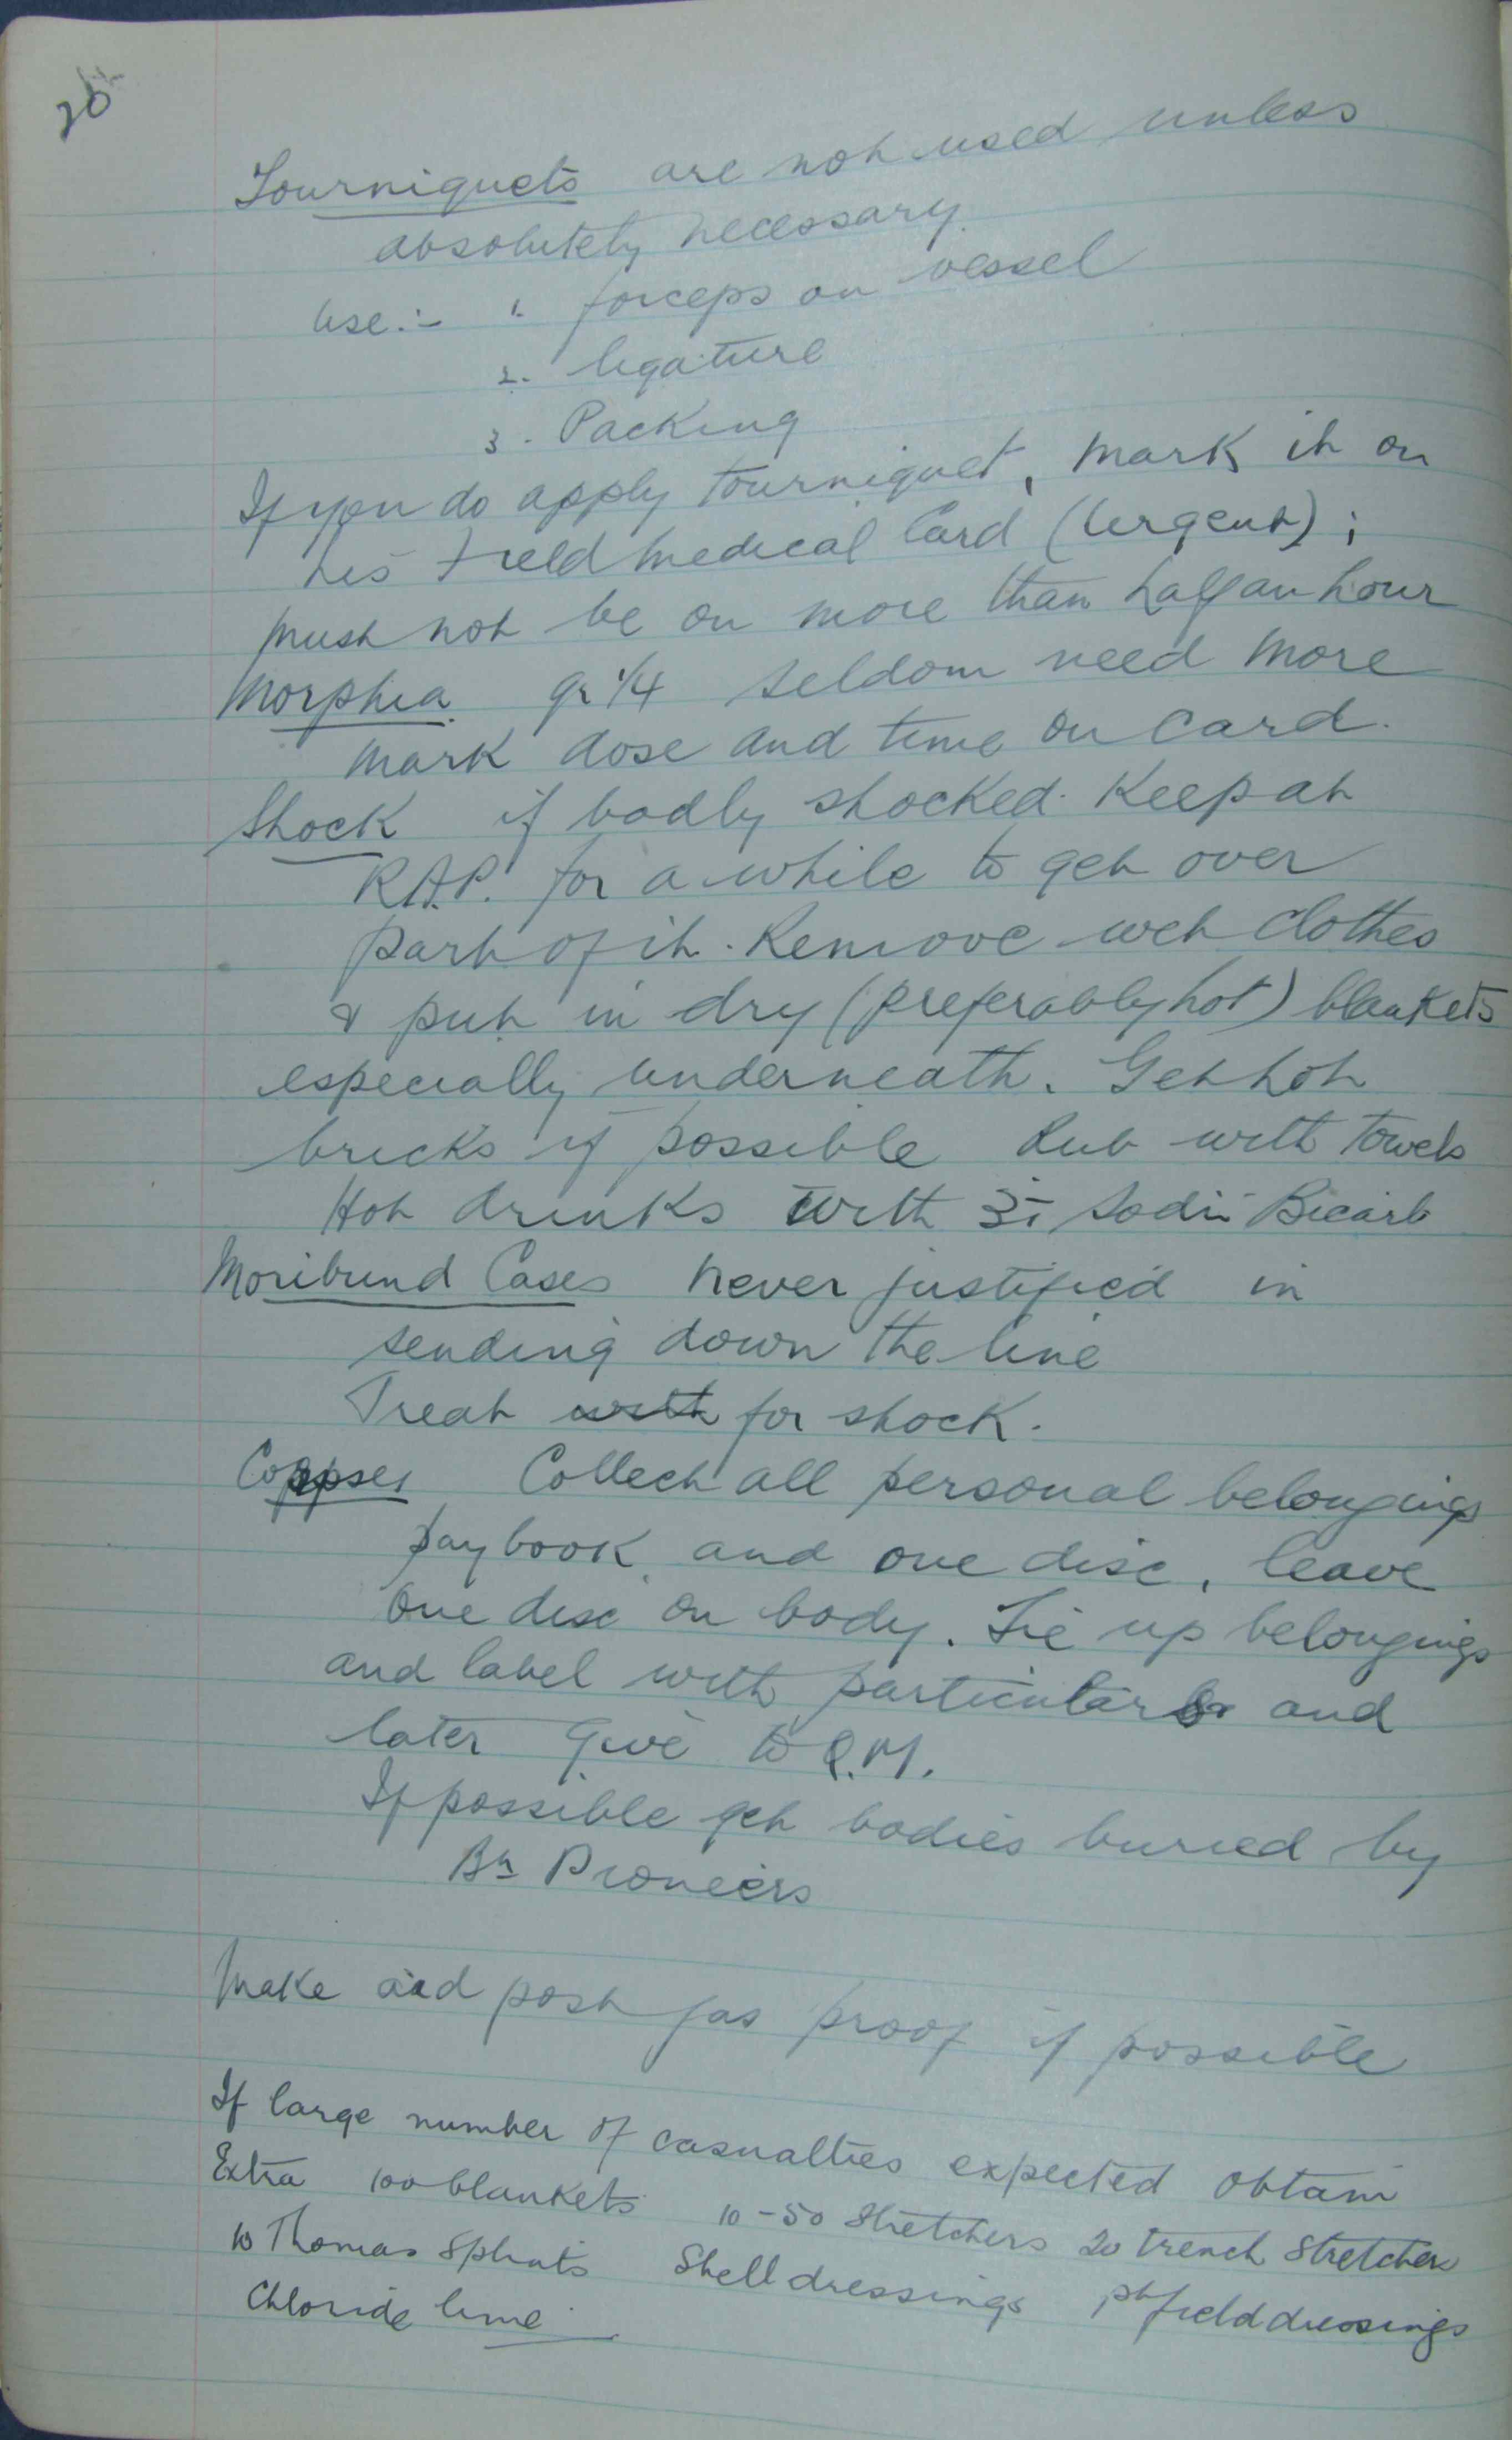 20
Tourniquets are not used unless
absolutely necessary.
Use:- 1. forceps on vessel
2. ligature
3. Packing
If you do apply tourniquet, mark it on
his Field Medical Card (Urgent);
must not be on more than half an hour
Morphia gr 1/4 seldom need more
mark dose and time on card.
Shock if badly shocked. Keep at
R.A.P. for a while to get over
part of it. Remove wet clothes
& put in dry (preferably hot) blankets
especially underneath. Get hot
bricks if possible Rub with towels
Hot drinks with ʒi Sodii Bicarb
Moribund Cases never justified in
sending down the line
Treat with for shock.
Corpses Collect all personal belongings
paybook and one disc, leave
one disc on body. Tie up belongings
and label with particulars and
later give to Q.M.
If possible get bodies buried by
Bn Pioneers
Make aid post gas proof if possible
If large number of casualties expected obtain
Extra 100 blankets 10-50 Stretchers 20 trench stretchers
10 Thomas Splints Shell dressings 1st field dressings
Chloride lime